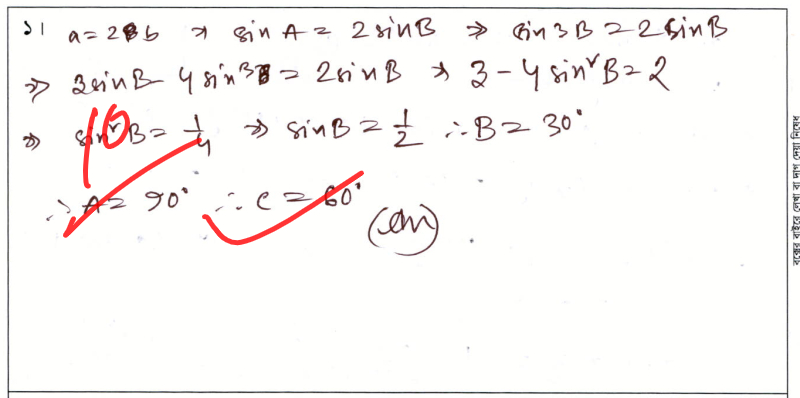 ১। a = 2b ⇒ sin A = 2 sin B ⇒ sin 3B = 2 sin B
⇒ 3 sin B - 4 sin³B = 2 sin B ⇒ 3 - 4 sin²B = 2
⇒ sin²B = 1/4 ⇒ sin B = 1/2 ∴ B = 30°
10
∴ A = 90° ∴ C = 60°
(Ans)
বক্সের বাইরে লেখা বা দাগ দেয়া নিষেধ